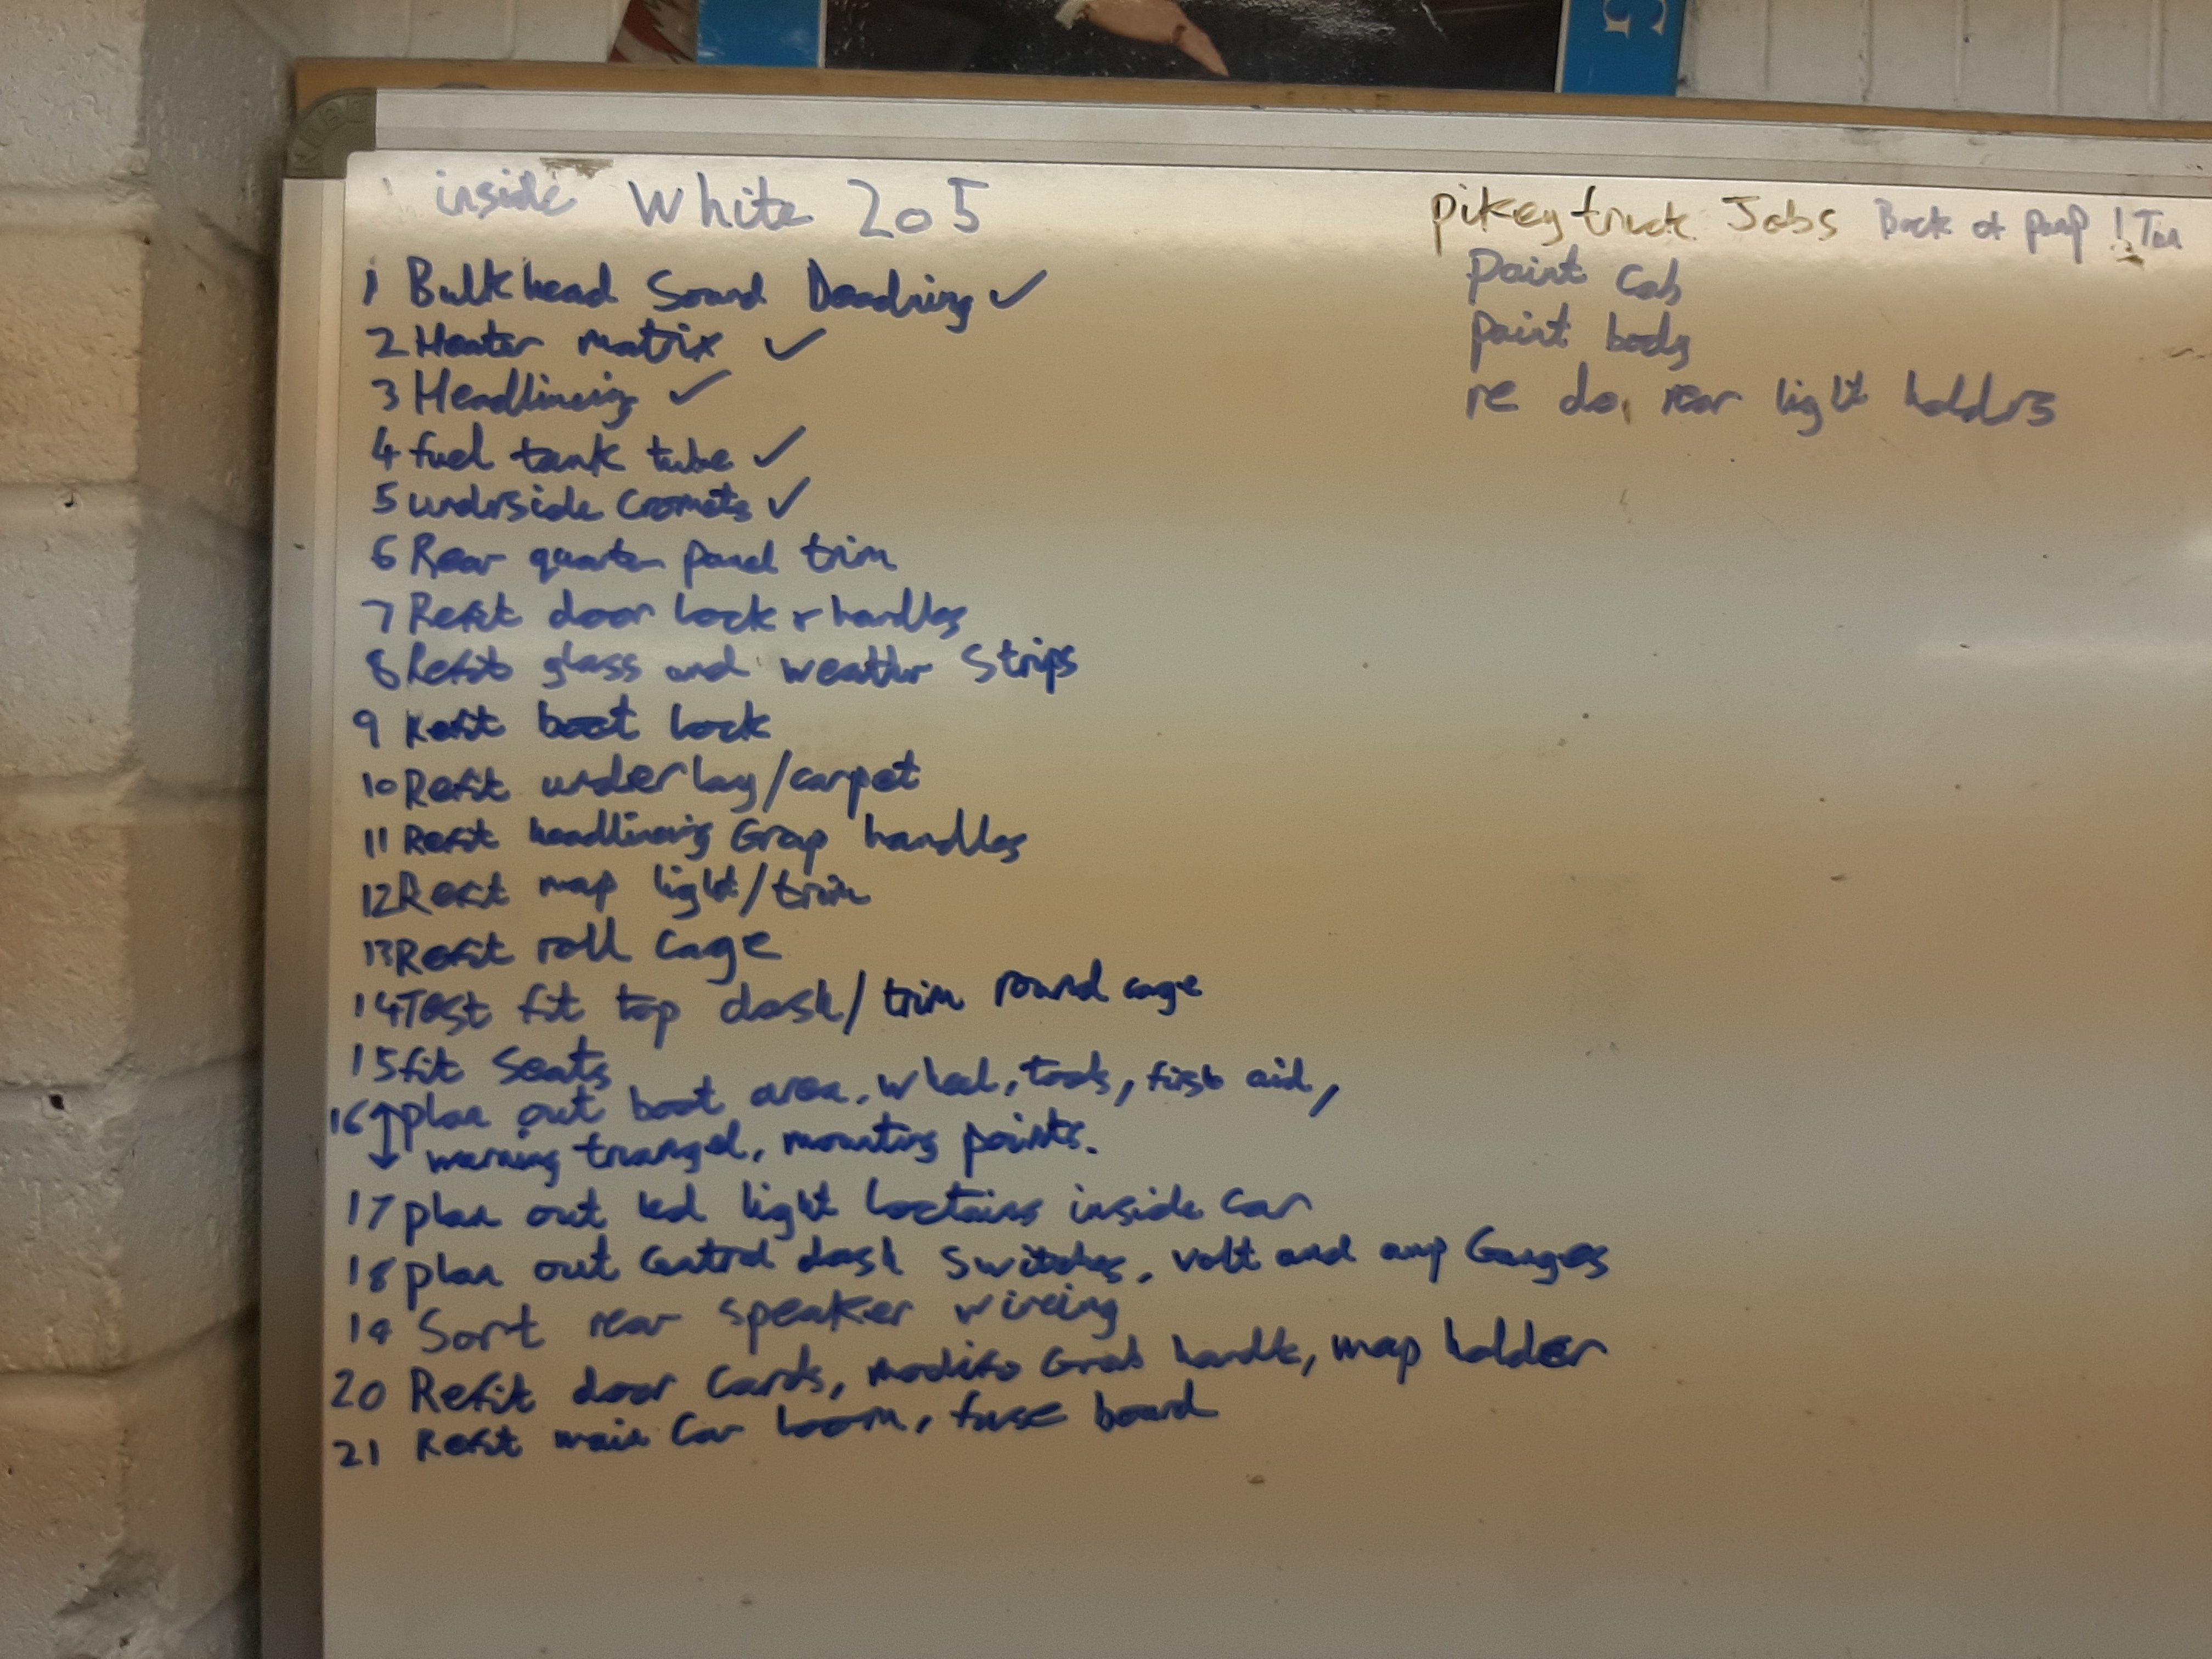 inside White 205
1 Bulkhead Sound Deadning ✓
2 Heater matrix ✓
3 Headlineing ✓
4 fuel tank tube ✓
5 underside Gromets ✓
6 Rear quarter panel trim
7 Refit door lock & handles
8 Refit glass and weather Strips
9 Refit boot lock
10 Refit underlay/carpet
11 Refit headlineing Grap handles
12 Refit map light/trim
13 Refit roll cage
14 Test fit top dash/trim round cage
15 fit Seats
16 plan out boot area, wheel, tools, first aid,
warning triangel, mounting points.
17 plan out led light loctains inside car
18 plan out central dash Switches, volt and amp Gauges
19 Sort rear speaker wireing
20 Refit door Cards, modify Grab handle, map holder
21 Refit main Car loom, fuse board
pikey truck Jobs Back of
Paint Cab
paint body
re do rear light holders